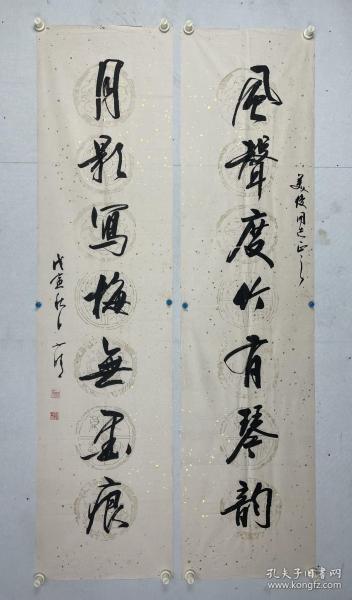 風聲度竹有琴韵
月影寫梅無墨痕
美俊同志正之
戊寅秋月
孔夫子旧书网
kongfz.com